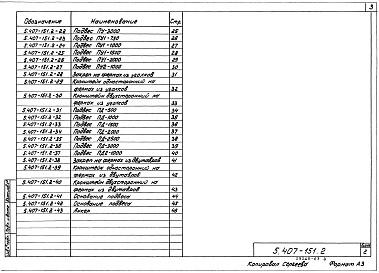 3
Обозначение Наименование Стр.
5.407-151.2-22 Подвес ПУ-3000 25
5.407-151.2-23 Подвес ПУ1-750 26
5.407-151.2-24 Подвес ПУ1-1000 27
5.407-151.2-25 Подвес ПУ1-1500 28
5.407-151.2-26 Подвес ПУ1-2000 29
5.407-151.2-27 Подвес ПУ2-1000 30
5.407-151.2-28 Закреп на фермах из уголков 31
5.407-151.2-29 Кронштейн односторонний на
фермах из уголков 32
5.407-151.2-30 Кронштейн двухсторонний на
фермах из уголков 33
5.407-151.2-31 Подвес ПД-500 34
5.407-151.2-32 Подвес ПД-1000 35
5.407-151.2-33 Подвес ПД-1500 36
5.407-151.2-34 Подвес ПД-2000 37
5.407-151.2-35 Подвес ПД-2500 38
5.407-151.2-36 Подвес ПД-3000 39
5.407-151.2-37 Подвес ПД2-1000 40
5.407-151.2-38 Закреп на фермах из двутавров 41
5.407-151.2-39 Кронштейн односторонний на
фермах из двутавров 42
5.407-151.2-40 Кронштейн двухсторонний на
фермах из двутавров 43
5.407-151.2-41 Основание подвеса 44
5.407-151.2-42 Основание подвеса 45
5.407-151.2-43 Анкер 46
5.407-151.2
Лист
2
Копировал Сергеева Формат А3